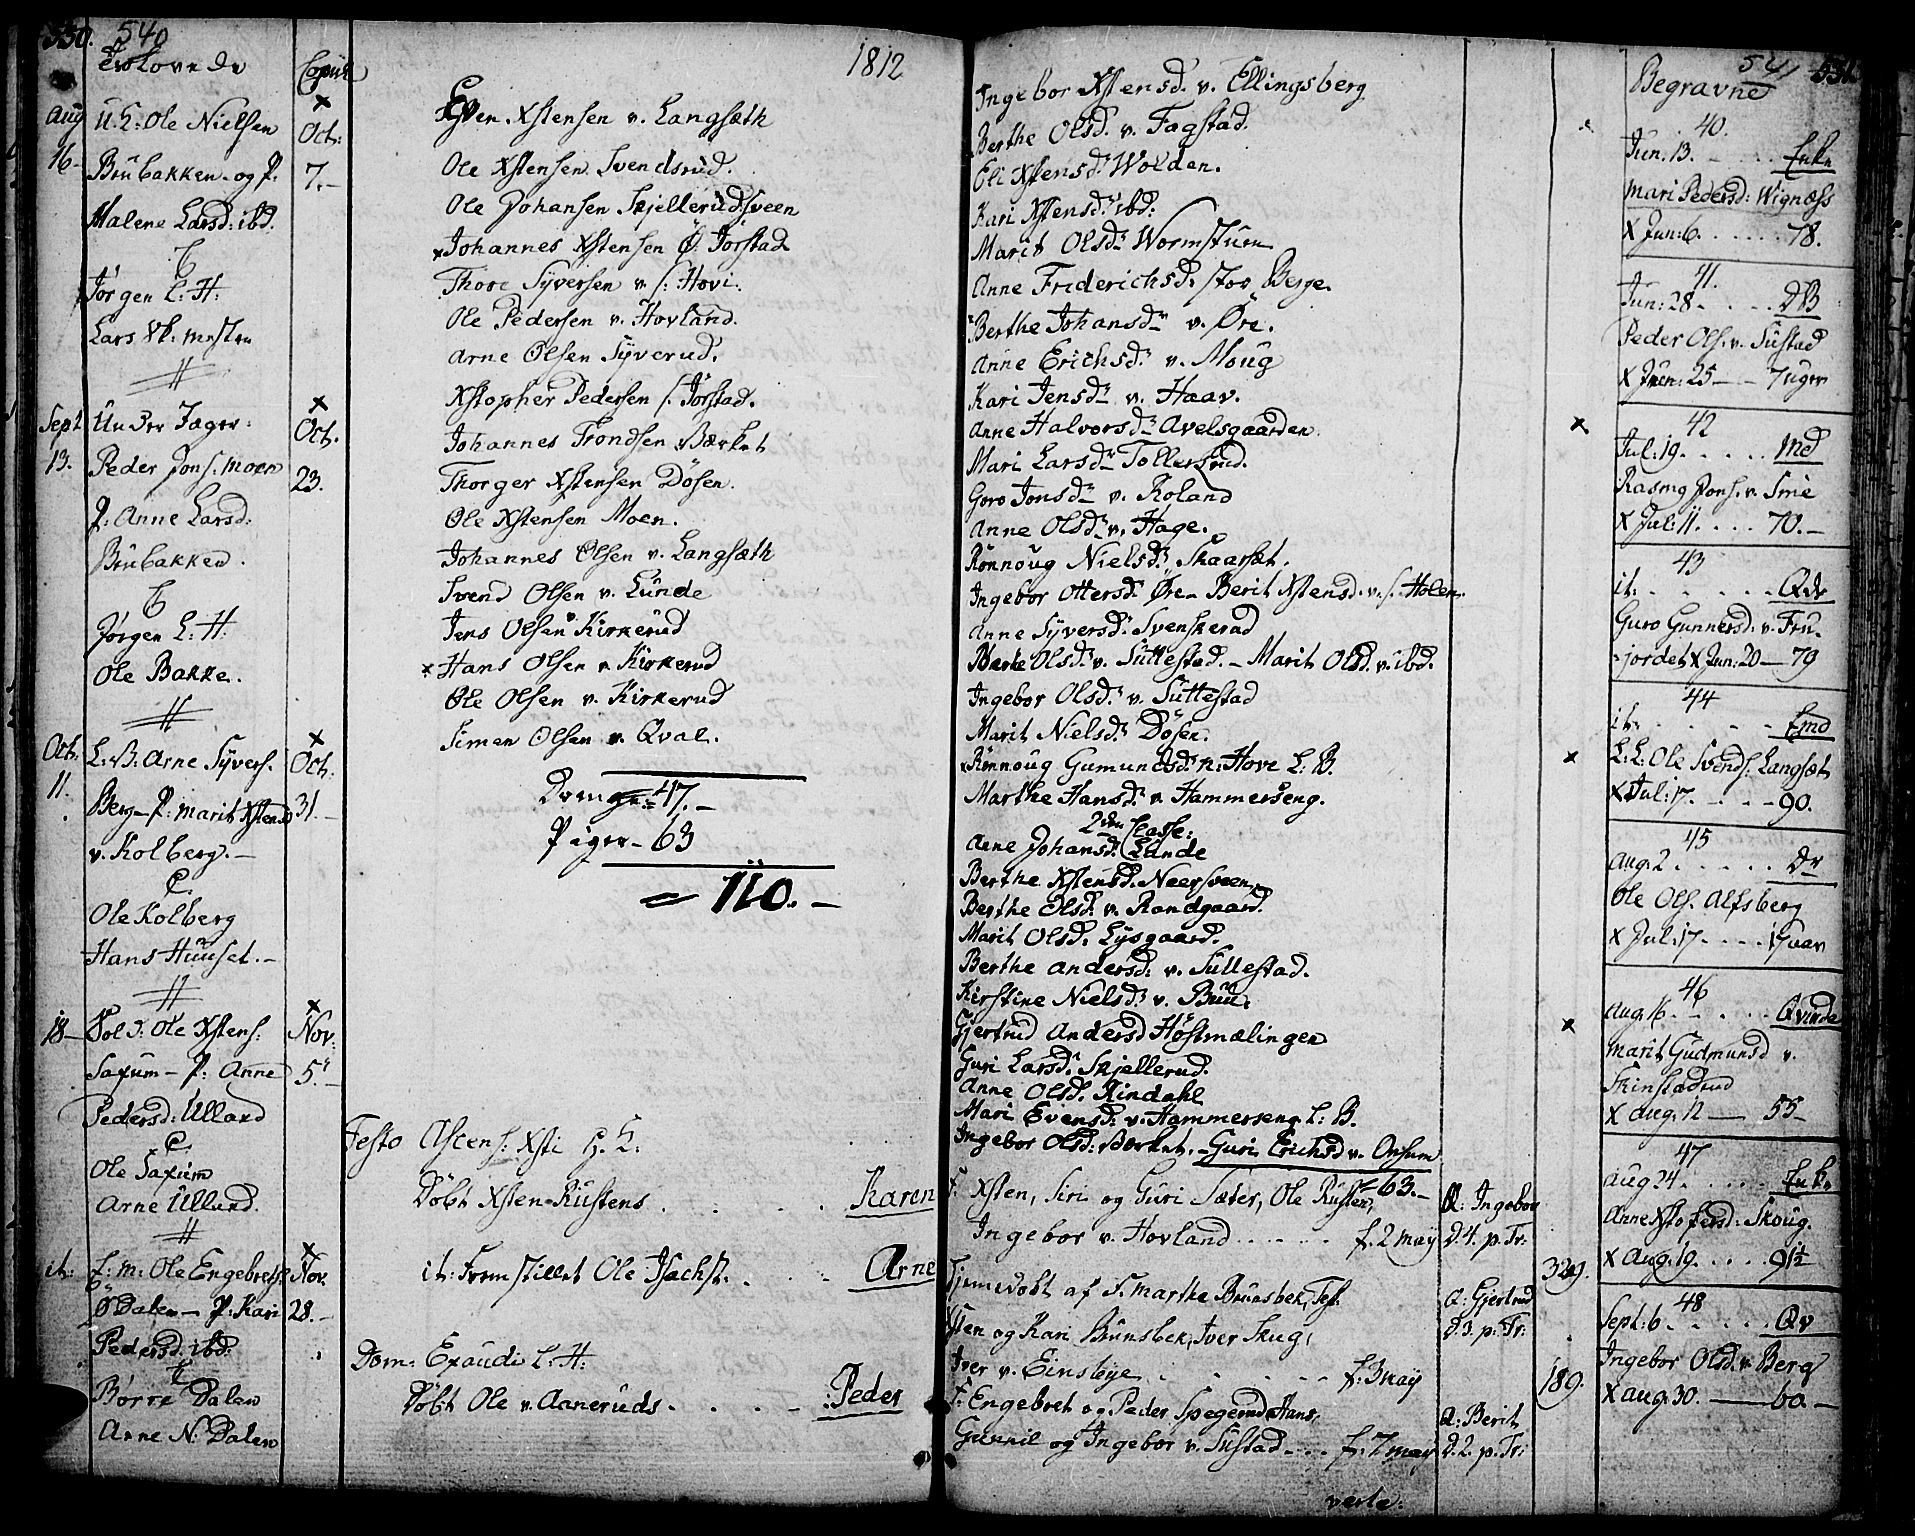 530. 540
Trolovede
Copul.
1812
Aug
16-
U. L: Ole Nielsen
Brubakken - og P.
Malene Larsd: ibd.
C
Jörgen L: H:
Lars
x
Oct:
7.-
Sept
13.
Under Jæger:
Peder Jons. Moen
P: Anne Larsd:
Brubakken.
C
Jörgen L: H:
Ole Bakke.
x
Oct.
23.
Oct:
11.
L: B: Arne Syvers.
Berg - P: Marit Xstensd
v. Kolberg. -
C.
Ole Kolberg
Hans Huuset. -
x
Oct:
31.-
18-
Sold: Ole Xstens:
Saxum - P: Anne
Pedersd: Ulland
C.
Ole Saxum
Arne Ulland.
x
Nov:
5.-
it:
L: M: Ole Engebrets.
Ö Dalen - P: Kari
Pedersd: ibd:
C
Börre Dalen
Arne N: Dalen
x
Nov.
28.-
Even Xstensen v. Langsæth
Ole Xstensen Svendsrud.
Ole Johansen Skjellerudsveen
x Johannes Xstensen Ö. Jörstad
Thore Syversen v. s: Hovi.
Ole Pedersen v. Hovland.
Arne Olsen Syverud.
Xstopher Pedersen s. Jörstad.
Johannes Trondsen Bærket
Thorger Xstensen Dösen.
Ole Xstensen Moen.
Johannes Olsen v. Langsæth
Svend Olsen v. Lunde
Jens Olsen v Kirkerud
x Hans Olsen v. Kirkerud
Ole Olsen v. Kirkerud
Simen Olsen v. Qval.
Drenge = 47.-
Piger - 63
= 110. -
Festo Ascens: Xsti H: L:
Döbt Xsten Rustens . . . . Karen
it: Fremstillet Ole Isachs. . . . Arne
Dom: Exaudi L: H:
Döbt Ole v. Aaneruds. . . . . Peder
Ingebor Xstensd. v. Ellingsberg
Berthe Olsd. v. Fagstad.
Eli Xstensd: Wolden.
Kari Xstensd: ibd:
Marit Olsd: Wormstuen
Anne Friderichsd. stor Berge.
Berthe Johansd: v. Öre.
Anne Erichsd: v. Moug
Kari Jensd: v. Haav.
Anne Halvorsd: Avelsgaarden.
Mari Larsd: Tollersrud.
Goro Jonsd: v. Roland
Anne Olsd: v. Hage.
Rönnoug Nielsd: Skaarsæt.
Ingebor Ottersd: Öre - Berit Xstensd. v. s. Holen.
Anne Syversd: Svenskerud
Berte Olsd: v. Suttestad. - Marit Olsd. v. ibd.
Ingebor Olsd: v. Suttestad
Marit Nielsd: Dösen.
Rönnoug Gumundsd: n: Hove L: B.
Marthe Hansd: v. Hammerseng.
2den Classe:
Anne Johansd: Lunde
Berthe Xstensd. Neersveen.
Berthe Olsd: v. Randgaard.
Marit Olsd. Lysgaard.
Berthe Andersd: v. Suttestad.
Kirstine Nielsd: v. Buu.
Gjertrud Andersd Höstmælingen
Guri Larsd: Skjellerud.
Anne Olsd. Rindahl
Mari Evensd: v. Hammerseng L: B.
Ingebor Olsd: Bærket. - Guri Erichsd v. Onsum
= 63.-
F: Xsten, Siri og Guri Sæter, Ole Rusten,
Ingebor v. Hovland . . . . . . f. 2 may
Q: Ingebor
D. 4. p. Tr:
Hjemedöbt af S. Marthe Brunsbek, Tes.
Xsten og Kari Brunsbek, Iver Skug,
Iver v. Einsbye . . . . f. 3 may
Q: Gjertrud
D. 3. p: Tr:
329.
F: Engebret og Peder Spegerud Hans,
Gunnil og Ingebor v. Sustad. . . . f. 7 may
Q: Berit
D. 2. p. Tr:
189.
verte:
541 531
Begravne
40.
Jun. 13. . . . . Enke
Mari Pedersd: Wignæss
X Jun: 6. . . . . . 78.
41.
Jun: 28 . . . . . DB
Peder Ols. v. Sustad
X Juni: 25 - - 7 uger
42
Jul: 19. . . . . . Md
Rasmg Jons. v. Smie
X Jul: 11. . . . 70.-
43
it: . . . . . . Qde
Guro Gunnersd: v. Fru-
jordet X Jun: 20 - 79
44
it: . . . . . Emd
L: L: Ole Svends: Langsæt
X Jul: 17. . . . - 90.
45
Aug: 2 . . . . . . Dr
Ole Ols. Alfsberg
X Jul: 17. . . . 19 aar
46
Aug: 16. . . . . Qvinde
Marit Gudmunsd v.
Skinstadrud
X Aug: 12 - 55-
47
Aug 24. . . . . . Enke
Anne Xstofersd: Skoug.
X Aug: 19. . . . . 91½
48
Sept: 6. . . . . Qv
Ingebor Olsd: v. Berg
X Aug: 30. - 60 -